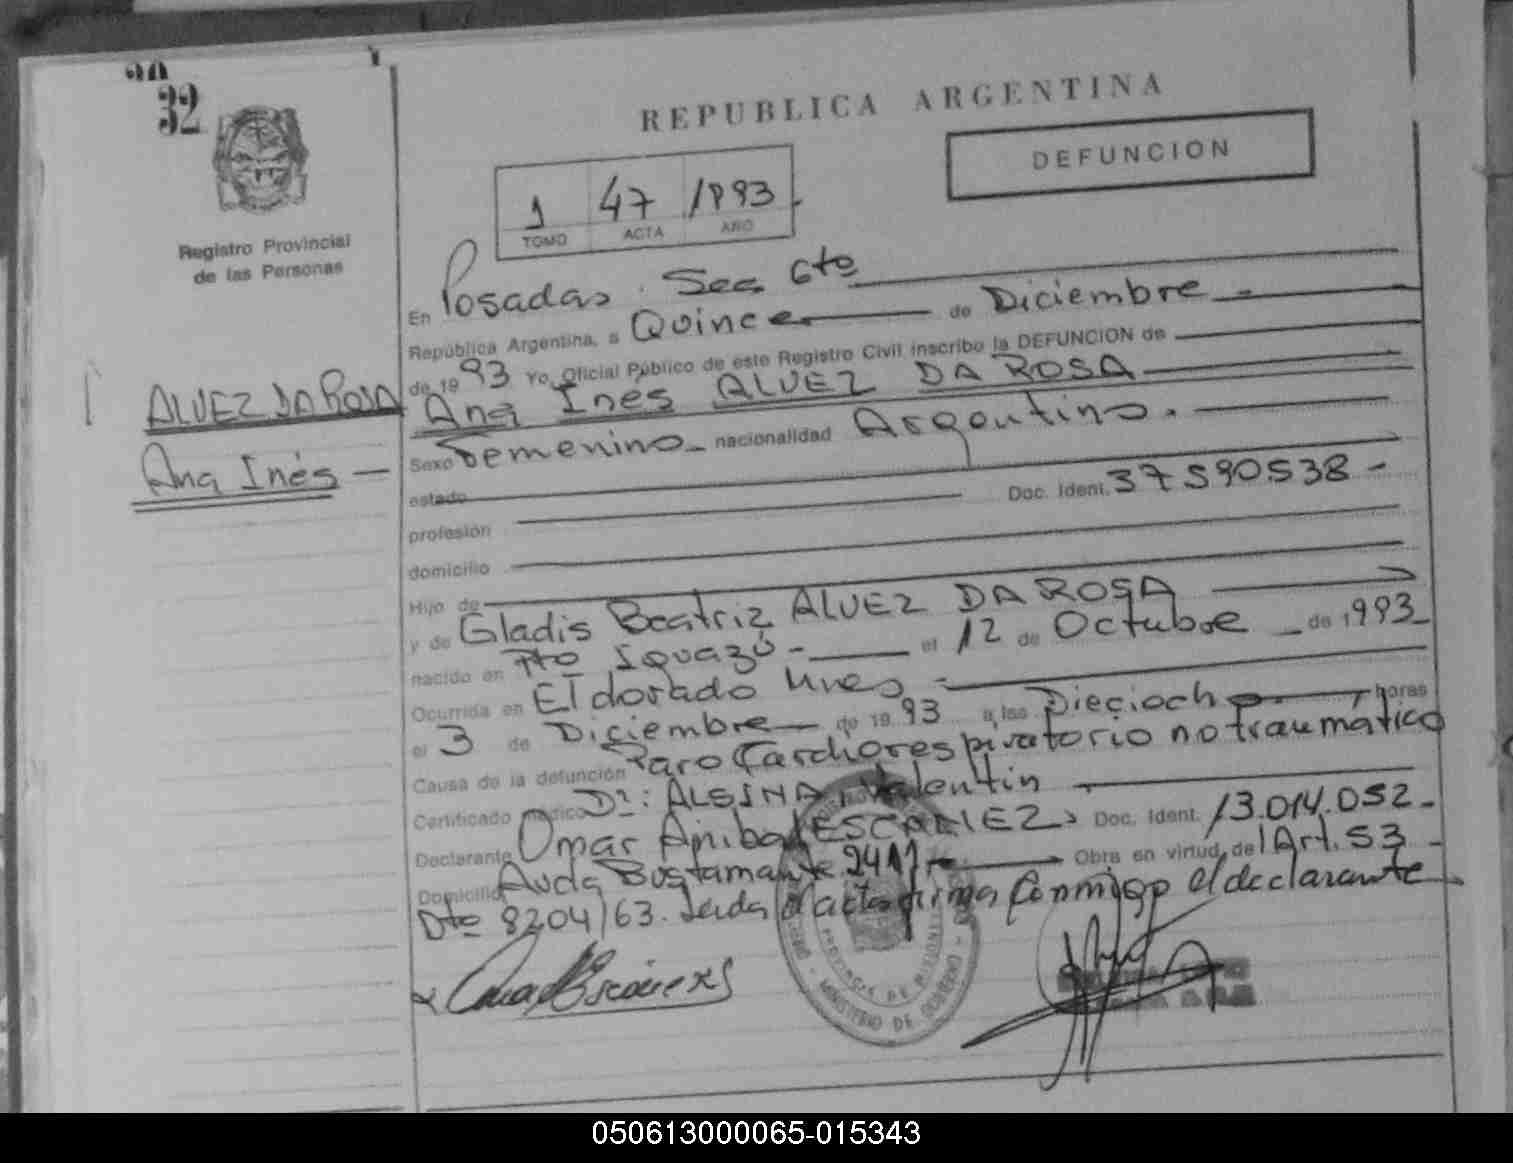 32
REPUBLICA ARGENTINA
DEFUNCION
1 47 1993
TOMO ACTA AÑO
Registro Provincial
de las Personas
En Posadas. Sec 6to
República Argentina, a Quince de Diciembre
de 1993 Yo, Oficial Público de este Registro Civil inscribo la DEFUNCION de
ALVEZ DA ROSA
Ana Inés
Ana Inés ALVEZ DA ROSA
Sexo Femenino nacionalidad Argentina.
estado Doc. Ident. 37590538-
profesión
domicilio
Hijo de
y de Gladis Beatriz ALVEZ DA ROSA
nacido en Pto Iguazú- el 12 de Octubre de 1993
Ocurrida en Eldorado Mnes
el 3 de Diciembre de 1993 a las Dieciocho horas
Causa de la defunción Paro Cardiorespiratorio no traumático
Certificado médico Dr: ALSINA, Valentin
Declarante Omar Anibal Doc. Ident. 13.014.052-
Domicilio Avda Bustamante 2417 Obra en virtud del Art. 53
Dto 8204/63. Leida el acta firma conmigo el declarante
PROVINCIA DE MISIONES
MINISTERIO DE GOBIERNO
050613000065-015343